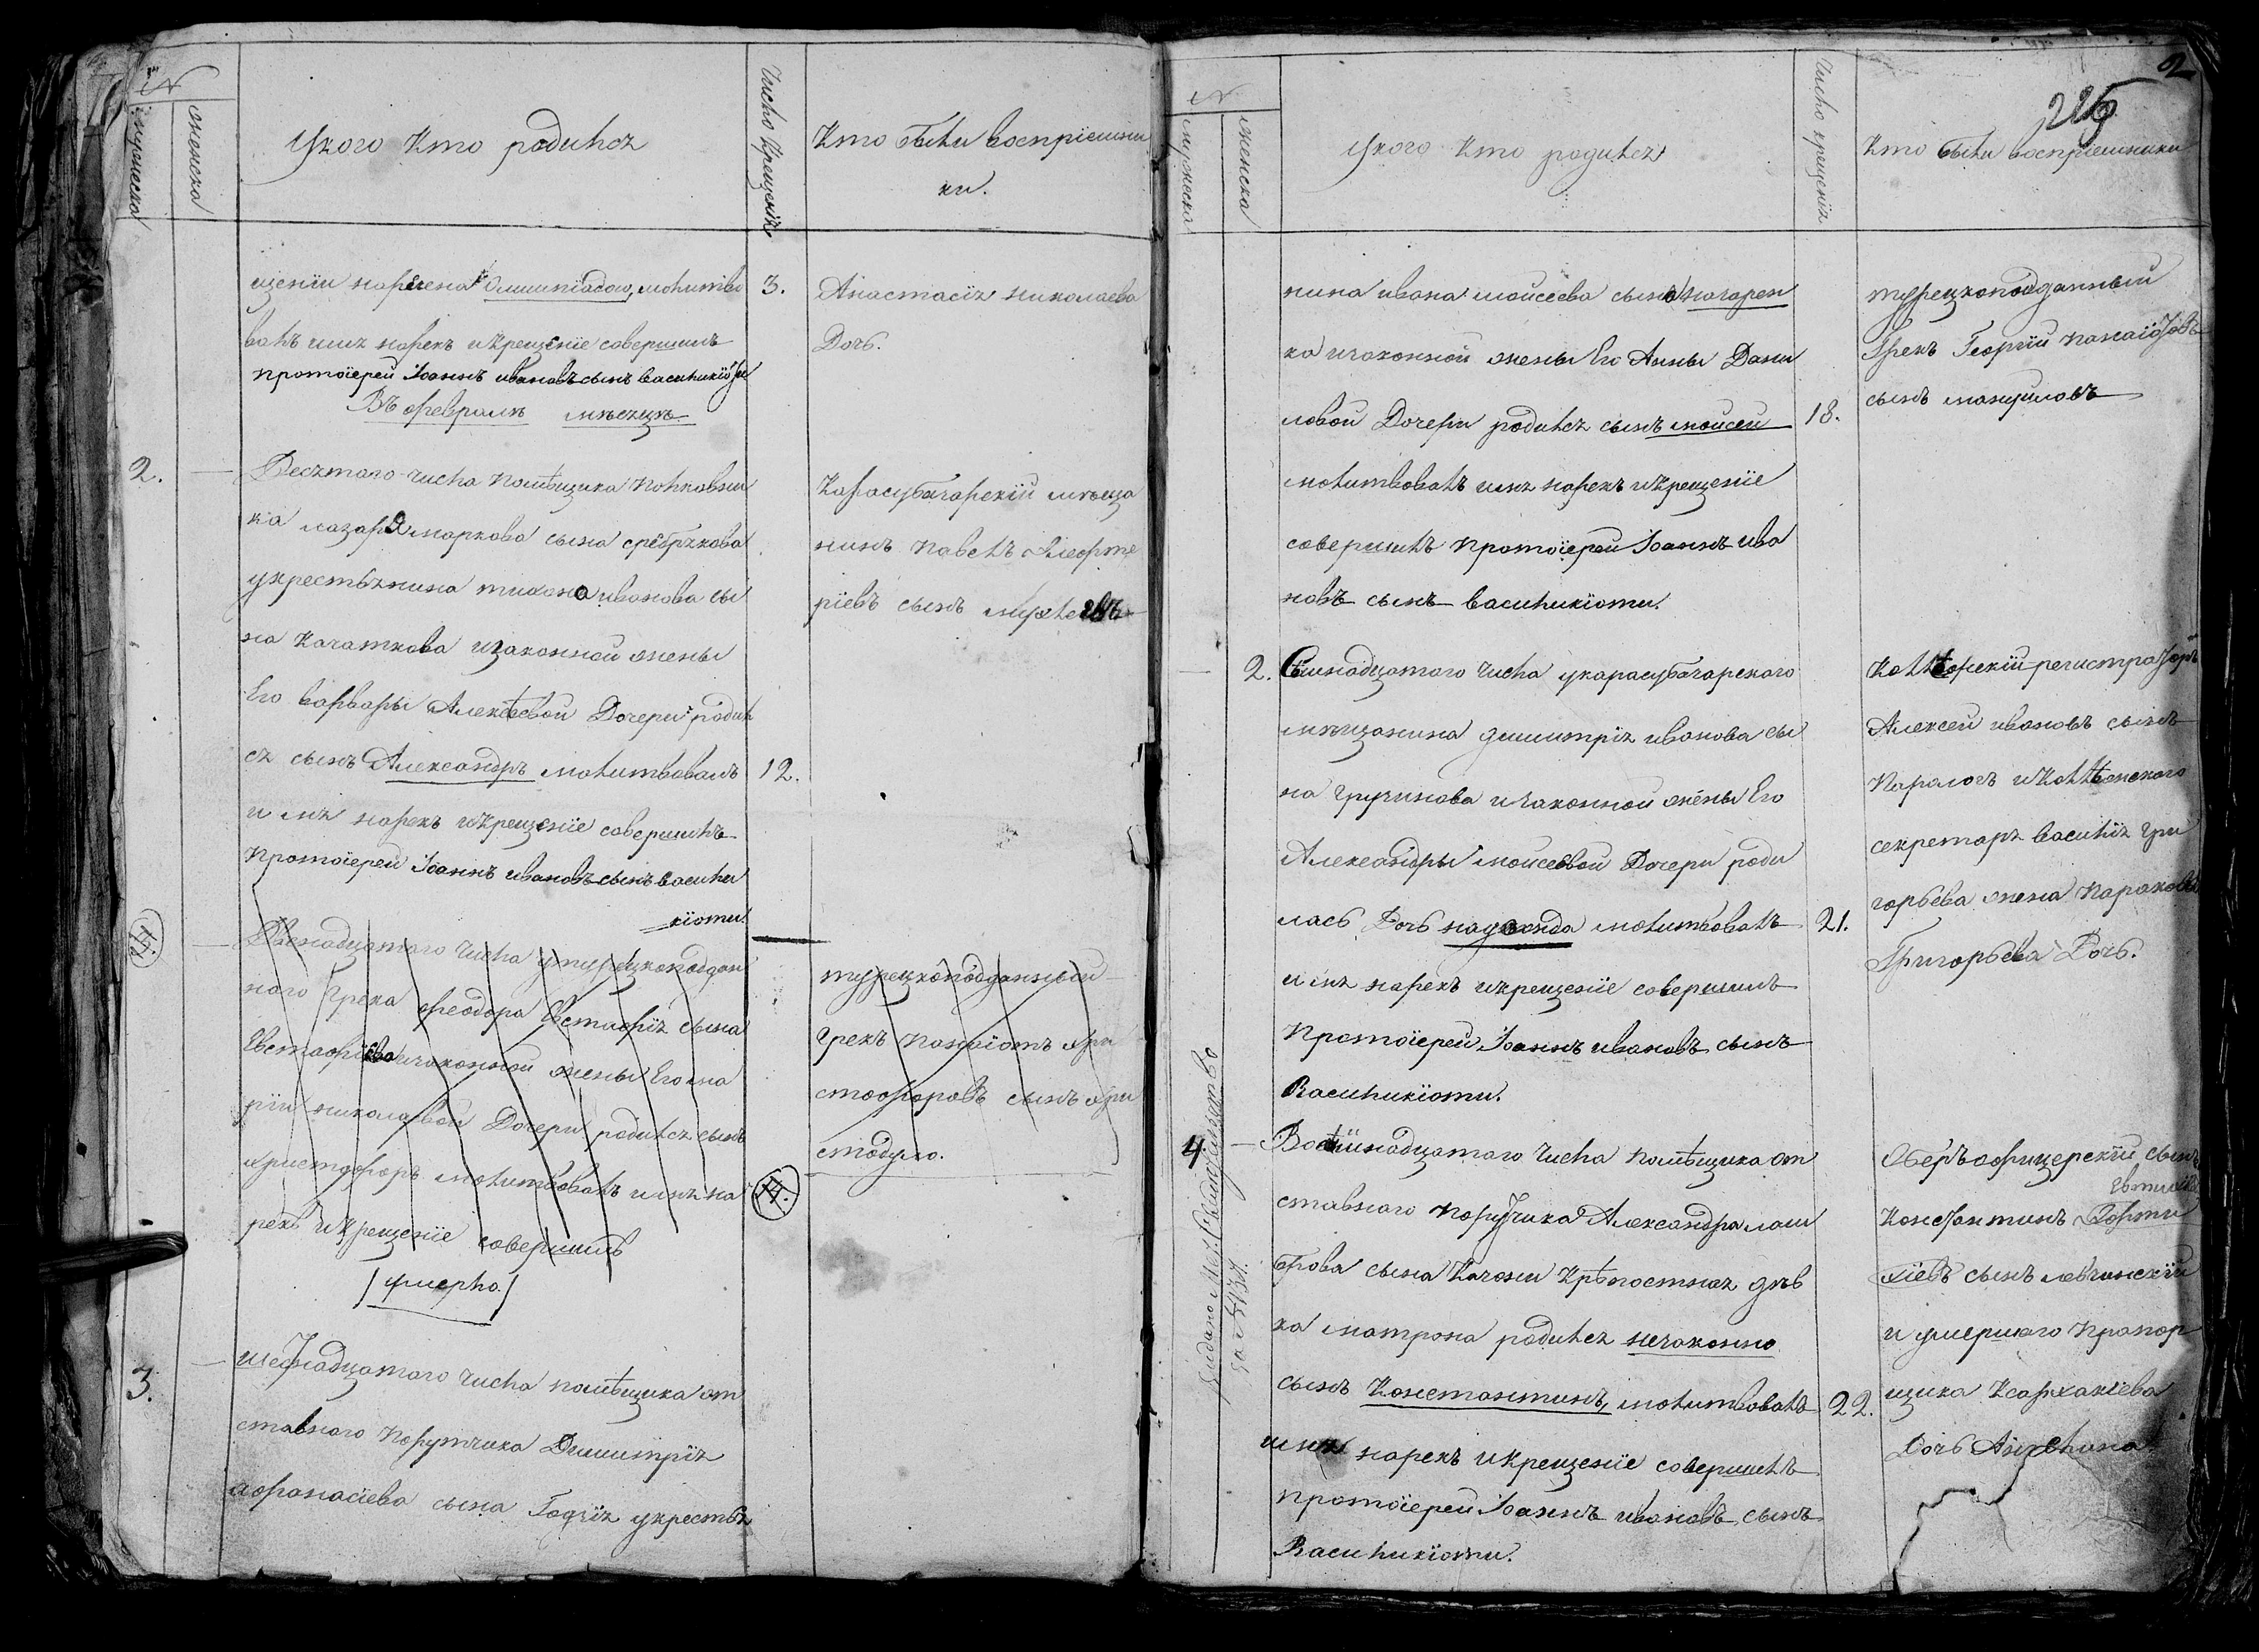 №
мужеска
женска
У кого кто родился
Число крещенія
Кто были воспріемни
ки.
щеніи наречена Олимпіадою, молитво
валъ имя нарекъ и крещеніе совершилъ
протоіерей Іоаннъ ивановъ сынъ василикіоти
Въ февралѣ мѣсяцѣ
3.
Анастасія николаева
Дочь.
2.
Десятаго числа помѣщика полковни
ка лазаря маркова сына серебрякова
у крестьянина тихона иванова сы
на Качаткова и законной жены
Его варвары Алексѣевой Дочери родил
ся сынъ Александръ молитвовалъ
имя нарекъ и крещеніе совершилъ
протоіерей Іоаннъ ивановъ сынъ васили
кіоти.
12.
Карасубазарскій мѣща
нинъ павелъ Елефте
ріевъ сынъ
Двенадцатаго числа у турецкоподдан
наго Грека феодора Евстафія сына
Евстафіева и законной жены Его ма
ріи николаевой Дочери родился сынъ
христофоръ молитвовалъ имя на
рекъ и крещеніе совершилъ
умерло.
турецкоподданный
грекъ панаіотъ хри
стофоровъ сынъ хри
стодуло.
3.
шестнадцатаго числа помѣщика от
ставнаго порутчика Димитрія
афанасіева сына у крестья
2
№
мужеска
женска
У кого кто родился
Число крещенія
Кто были воспріемники
нина ивана моисеева сына
ка и законной жены Его Анны Дани
ловой Дочери родился сынъ моисей
молитвовалъ имя нарекъ и крещеніе
совершилъ протоіерей Іоаннъ ива
новъ сынъ василикіоти.
18.
турецкоподданный
Грекъ Георгій панаіотовъ
сынъ мануиловъ
2.
Семнадцатаго числа у карасубазарскаго
мѣщанина димитрія иванова сы
на гручинова и законной жены Его
Александры моисеевой Дочери роди
лась Дочь надежда молитвовалъ
имя нарекъ и крещеніе совершилъ
протоіерей Іоаннъ ивановъ сынъ
Василикіоти.
21.
Коллежскій регистраторъ
Алексей ивановъ сынъ
и Коллежскаго
секретаря василія гри
горьева жена
Григорьева Дочь.
4.
Выдано Мет. Свидѣтельство
за №
Восемнадцатаго числа помѣщика от
ставнаго порутчика Александра
сына Крѣпостная дѣв
ка матрона родился незаконно
сынъ Константинъ, молитвовалъ
имя нарекъ и крещеніе совершилъ
протоіерей Іоаннъ ивановъ сынъ
Василикіоти.
22.
Оберъ офицерскій сынъ
Константинъ
сынъ левчинскій
и умершаго прапор
щика
Дочь Ангелина